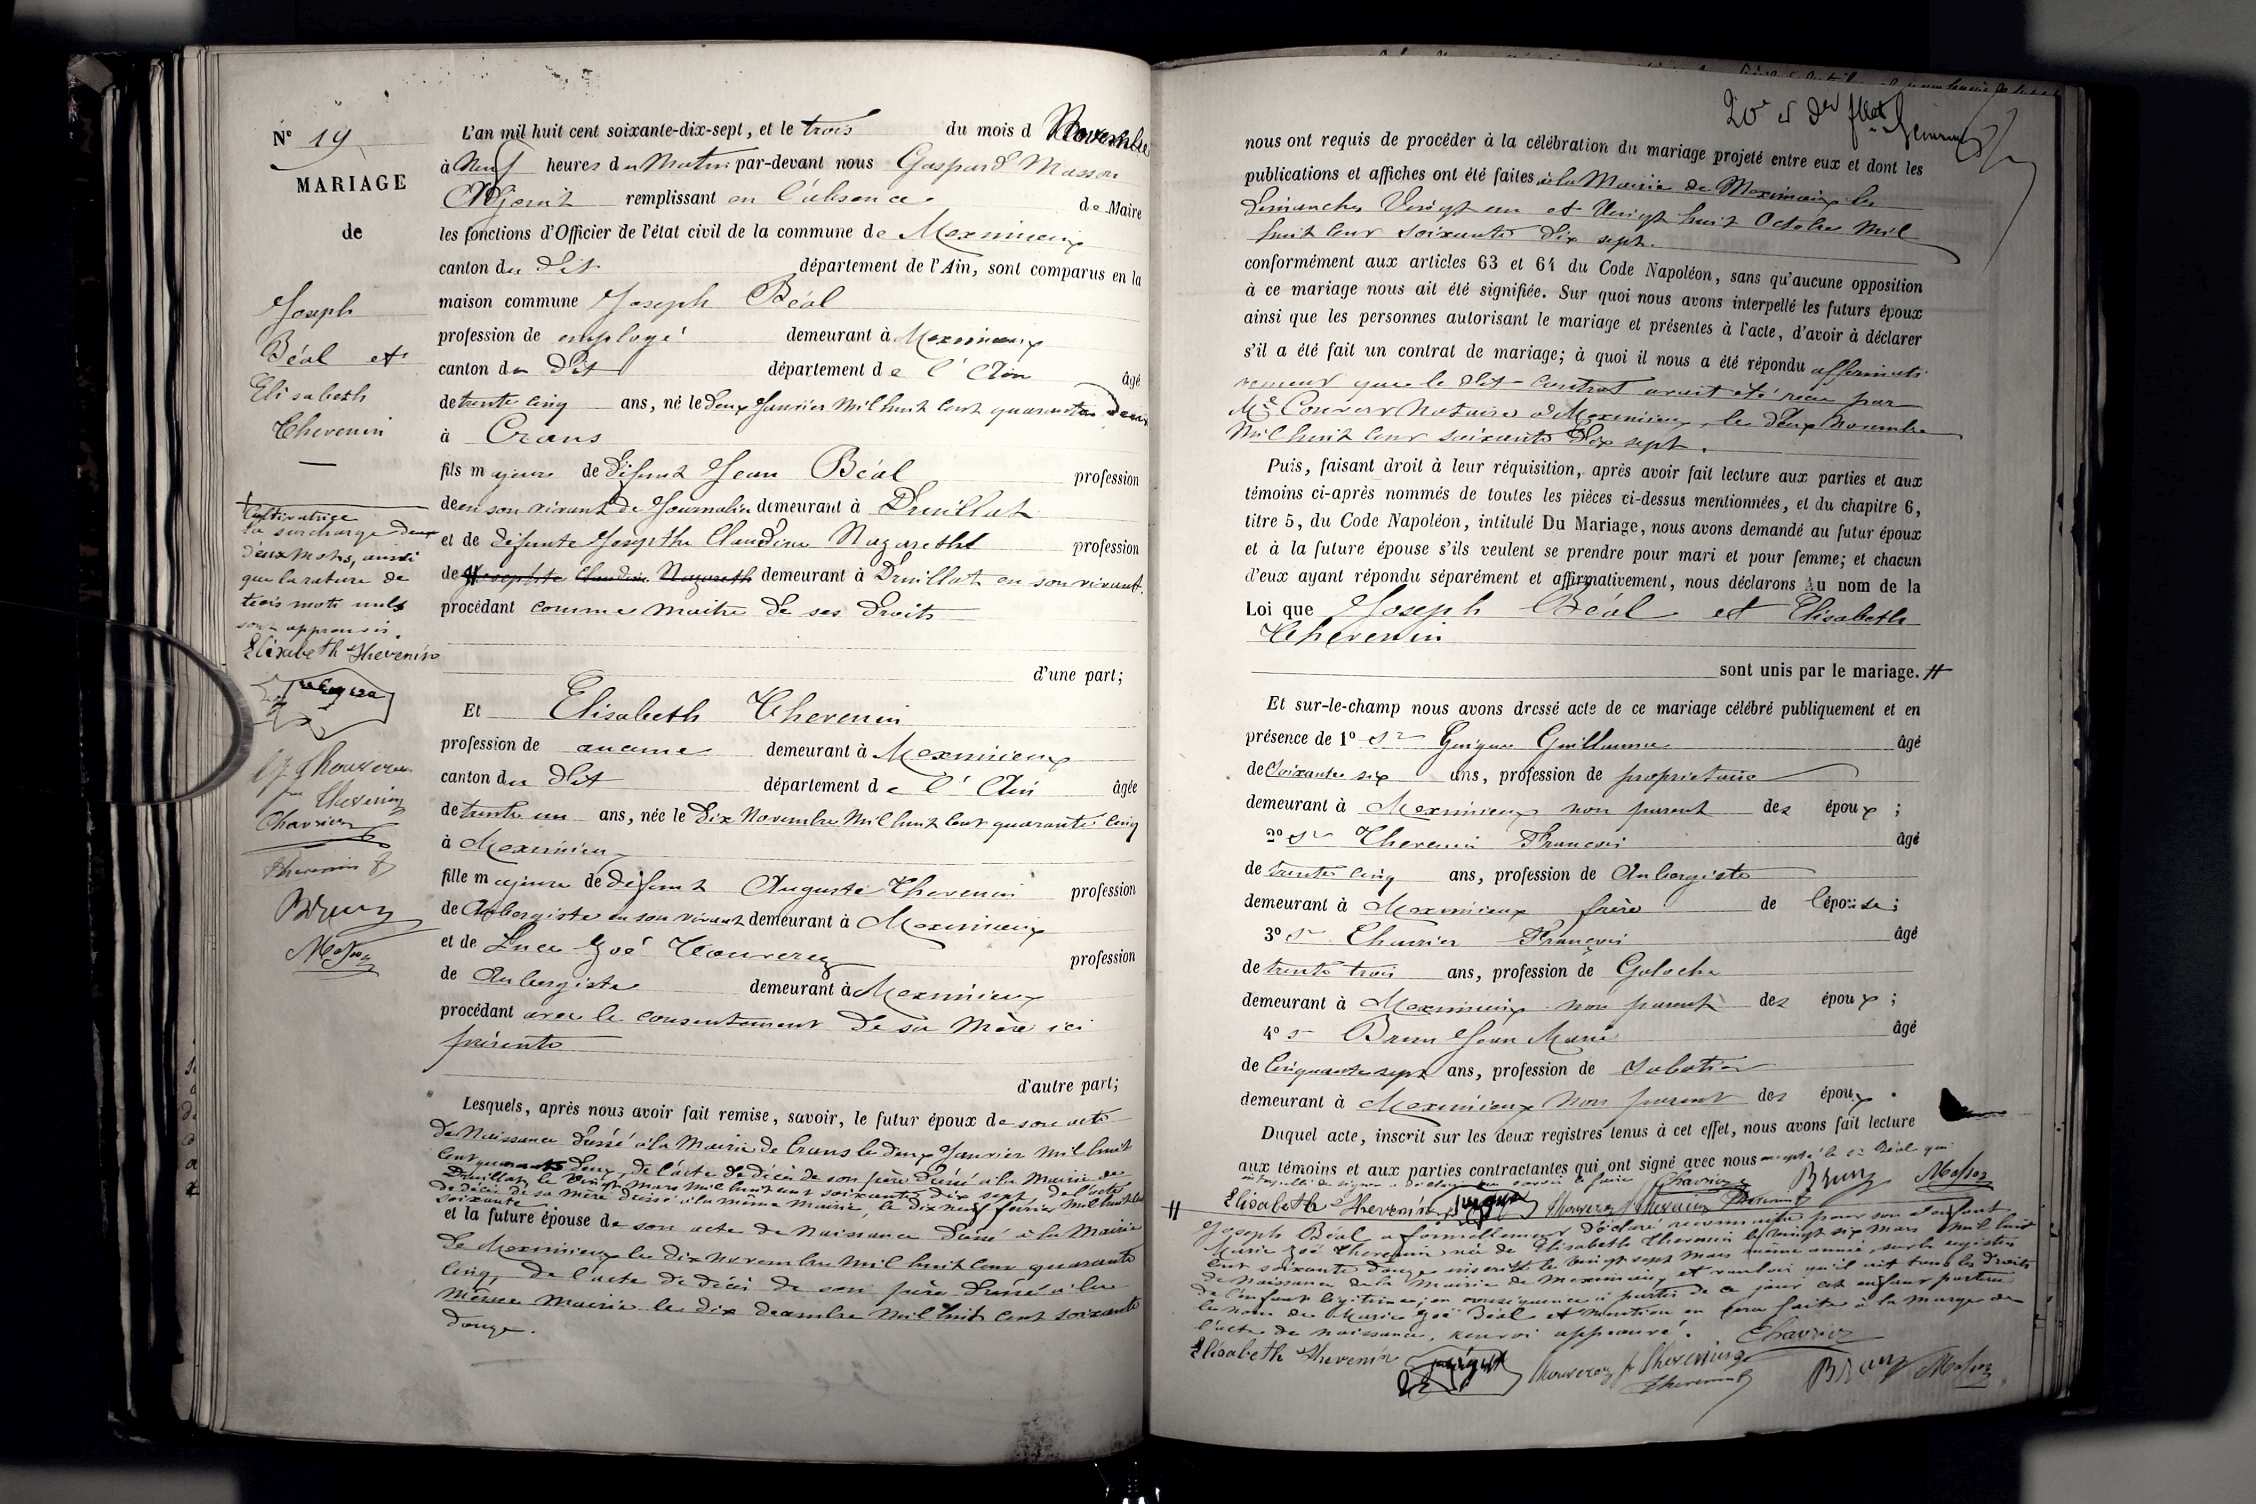 N° 19
MARIAGE
de
Joseph
Béal et
Elisabeth
Thevenin
Cultivatrice
la surcharge deux
deux mots, ainsi
que la rature de
trois mots nuls
sont approuvés.
Elisabeth Thevenin
Thevenin
Chavrier
Thevenin f
Brun
Masson
L'an mil huit cent soixante-dix-sept, et le trois du mois d Novembre
à Neuf heures du Matin par-devant nous Gaspard Masson
Adjoint remplissant en l'absence de Maire
les fonctions d'Officier de l'état civil de la commune de Meximieux
canton du dit département de l'Ain, sont comparus en la
maison commune Joseph Béal
profession de employé demeurant à Meximieux
canton du dit département de l'Ain âgé
de trente cinq ans, né le deux Janvier mil huit cent quarante deux
à Crans
fils majeur de défunt Jean Béal profession
de en son vivant de Journalier demeurant à Druillat
et de défunte Josephte Claudine Nazareth profession
de Josephte Claudine Nazareth demeurant à Druillat en son vivant.
procédant comme maitre de ses droits
d'une part;
Et Elisabeth Thevenin
profession de aucune demeurant à Meximieux
canton du dit département de l'Ain âgée
de trente un ans, née le dix Novembre mil huit cent quarante cinq
à Meximieux
fille majeure de défunt Auguste Thevenin profession
de Aubergiste en son vivant demeurant à Meximieux
et de Luce Zoé profession
de Aubergiste demeurant à Meximieux
procédant avec le consentement de sa mère ici
présente
d'autre part;
Lesquels, après nous avoir fait remise, savoir, le futur époux de son acte
de Naissance dressé à la Mairie de Crans le deux Janvier mil huit
cent quarante deux, de l'acte de décès de son père dressé à la Mairie de
Druillat, le vingt mars mil huit cent soixante dix sept, de l'acte
de décès de sa mère dressé à la même mairie, le dix neuf février mil huit cent
soixante
et la future épouse de son acte de Naissance dressé à la Mairie
de Meximieux le dix novembre mil huit cent quarante
cinq, de l'acte de décès de son père dressé à la
même mairie le dix decembre mil huit cent soixante
douze.
20e et der
nous ont requis de procéder à la célébration du mariage projeté entre eux et dont les
publications et affiches ont été faites à la Mairie de Meximieux les
dimanches Vingt un et Vingt huit Octobre Mil
huit cent soixante dix sept.
conformément aux articles 63 et 64 du Code Napoléon, sans qu'aucune opposition
à ce mariage nous ait été signifiée. Sur quoi nous avons interpellé les futurs époux
ainsi que les personnes autorisant le mariage et présentes à l'acte, d'avoir à déclarer
s'il a été fait un contrat de mariage; à quoi il nous a été répondu affirmati
vement que le dit contrat avait été reçu par
Me Notaire à Meximieux, le deux Novembre
Mil huit cent soixante dix sept.
Puis, faisant droit à leur réquisition, après avoir fait lecture aux parties et aux
témoins ci-après nommés de toutes les pièces ci-dessus mentionnées, et du chapitre 6,
titre 5, du Code Napoléon, intitulé Du Mariage, nous avons demandé au futur époux
et à la future épouse s'ils veulent se prendre pour mari et pour femme; et chacun
d'eux ayant répondu séparément et affirmativement, nous déclarons Au nom de la
Loi que Joseph Béal et Elisabeth
Thevenin
sont unis par le mariage. #
Et sur-le-champ nous avons dressé acte de ce mariage célébré publiquement et en
présence de 1° Sr Guigue Guillaume âgé
de soixante six ans, profession de proprietaire
demeurant à Meximieux non parent des époux;
2° Sr Thevenin François âgé
de trente cinq ans, profession de Aubergiste
demeurant à Meximieux frère de l'épouse;
3° Sr Chavrier François âgé
de trente trois ans, profession de Galoche
demeurant à Meximieux non parent des époux;
4° S Brun Jean Marie âgé
de cinquante sept ans, profession de Sabotier
demeurant à Meximieux non parent des époux.
Duquel acte, inscrit sur les deux registres tenus à cet effet, nous avons fait lecture
aux témoins et aux parties contractantes qui ont signé avec nous excepté le Sr Béal qui
interpellé de signer a déclaré ne savoir le faire Chavrier Brun Masson
# Elisabeth Thevenin Thevenin Thevenin f
Joseph Béal a formellement déclaré reconnaitre pour son enfant
Marie Zoé Thevenin née de Elisabeth Thevenin le vingt six mars mil huit
cent soixante douze inscrite le vingt sept mars même année, sur le registre
de naissance de la mairie de Meximieux et vouloir qu'il ait tous les droits
de l'enfant légitime; en conséquence à partir de ce jour cet enfant portera
le nom de Marie Zoé Béal et mention en sera faite à la marge de
l'acte de naissance, renvoi approuvé. Chavrier
Elisabeth Thevenin Thevenin Brun Masson
Thevenin f